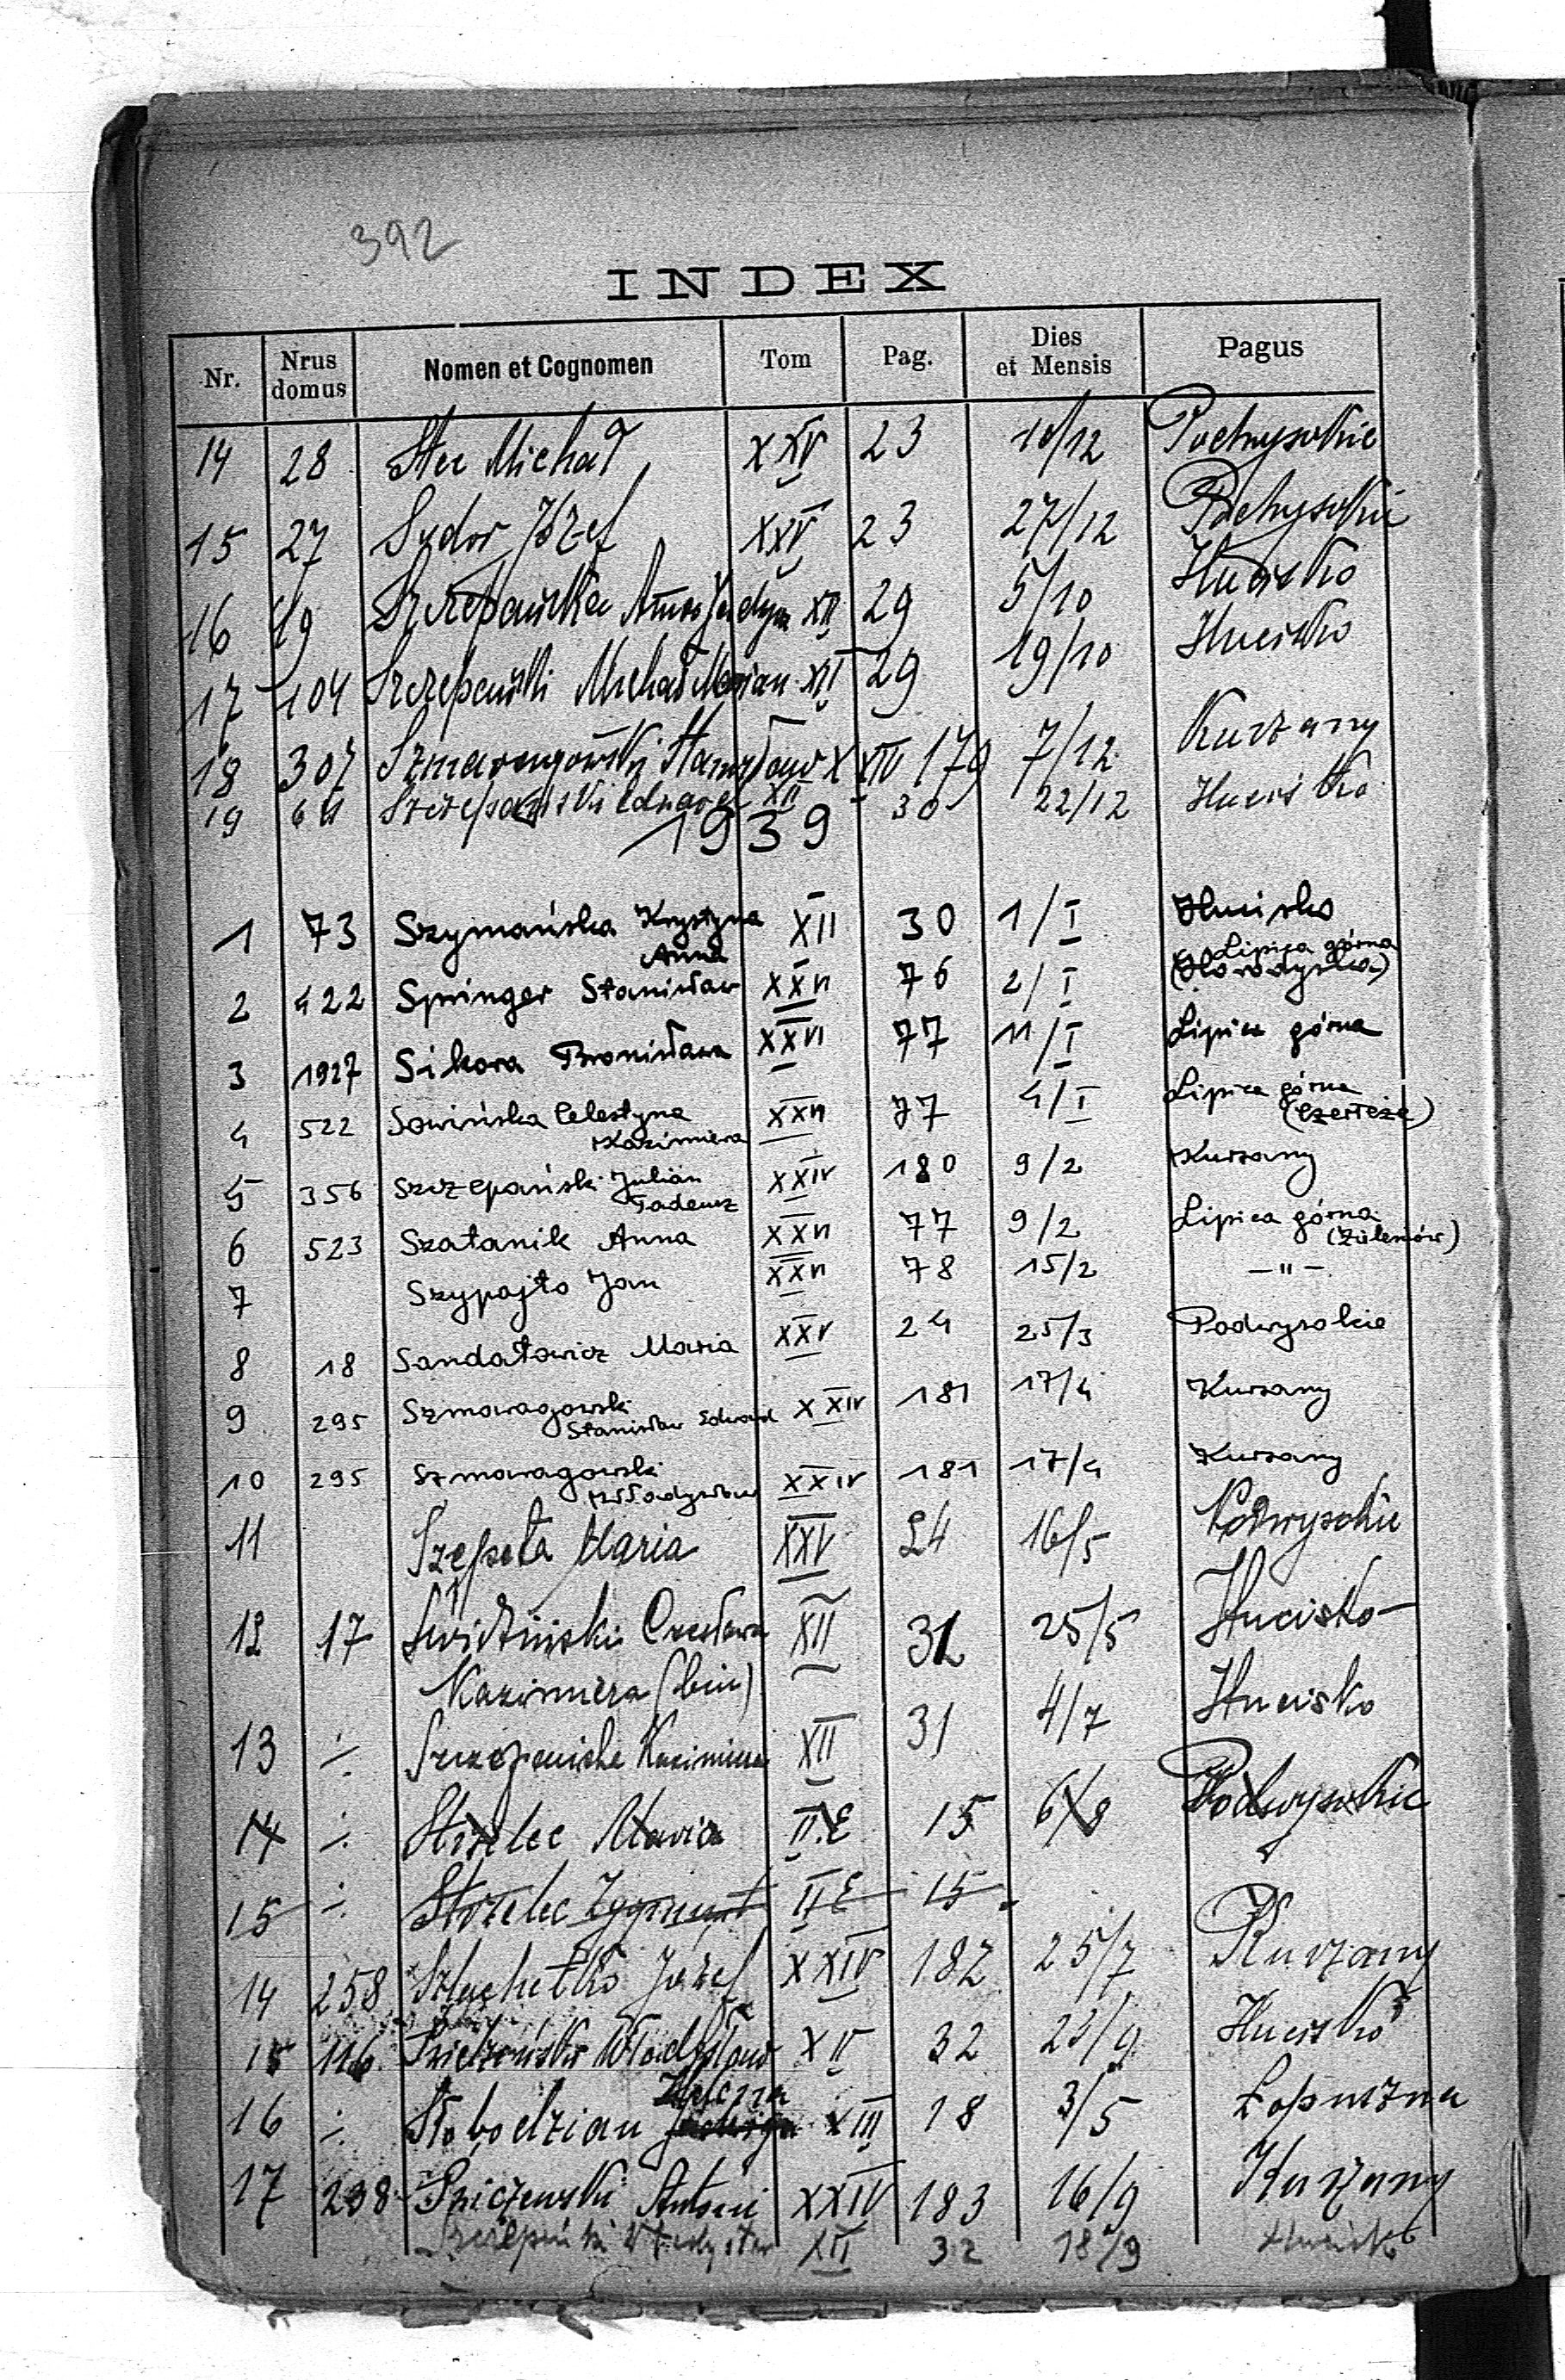 392
INDEX
Nr. Nrus domus Nomen et Cognomen Tom Pag. Dies et Mensis Pagus
14 28 Stec Michał XXV 23 10/12 Podwysokie
15 27 Sydor Józef XXV 23 27/12 Podwysokie
16 19 Szczepańska Anna XII 29 5/10 Hucisko
17 104 Szczepański Michał Marian XII 29 19/10 Hucisko
18 307 Szmaragowski Stanisław XXIV 179 7/12 Kurzany
19 64 Szczepański Edward XII 30 22/12 Hucisko
1939
1 73 Szymańska Krystyna XII 30 1/I Hucisko
Anna
Lipica górna
2 422 Springer Stanisław XXVI 76 2/I (Horodyska)
3 1927 Sikora Bronisława XXVI 77 11/I Lipica górna
4 522 Sowińska Celestyna XXVI 77 4/I Lipica górna
Kazimiera (Czerteże)
5 356 Szczepański Julian XXIV 180 9/2 Kurzany
Tadeusz
6 523 Szatanik Anna XXVI 77 9/2 Lipica górna
(Zuleniów)
7 Szypajto Jan XXVI 78 15/2 -"-
8 18 Sandałowicz Maria XXV 24 25/3 Podwysokie
9 295 Szmaragowski XXIV 181 17/4 Kurzany
Stanisław Edward
10 295 Szmaragowski XXIV 181 17/4 Kurzany
Władysław
11 Szepeta Maria XXV 24 16/5 Podwysokie
12 17 Czesława XII 31 25/5 Hucisko
Kazimiera (bin)
13 ·/. Szczepańska Kazimiera XII 31 4/7 Hucisko
14 ·/. Strzelec Maria II.E 15 6/8 Podwysokie
15 ·/. Strzelec Zygmunt II E 15
14 258 Szlachetko Józef XXIV 182 25/7 Kurzany
15 116 Władysław XII 32 23/9 Hucisko
Helena
16 ·/. Słobodzian XIII 18 3/5 Łopuszna
17 298 Spiczewski Antoni XXIV 183 16/9 Kurzany
Szczepański Władysław XII 32 18/9 Hucisko